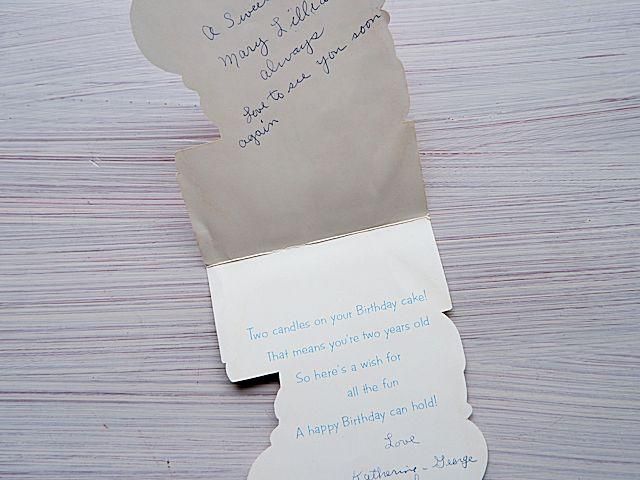 A Sweet
Mary Lillian
always
Love to see you soon
again
Two candles on your Birthday cake!
That means you're two years old
So here's a wish for
all the fun
A happy Birthday can hold!
Love
Katherine - George